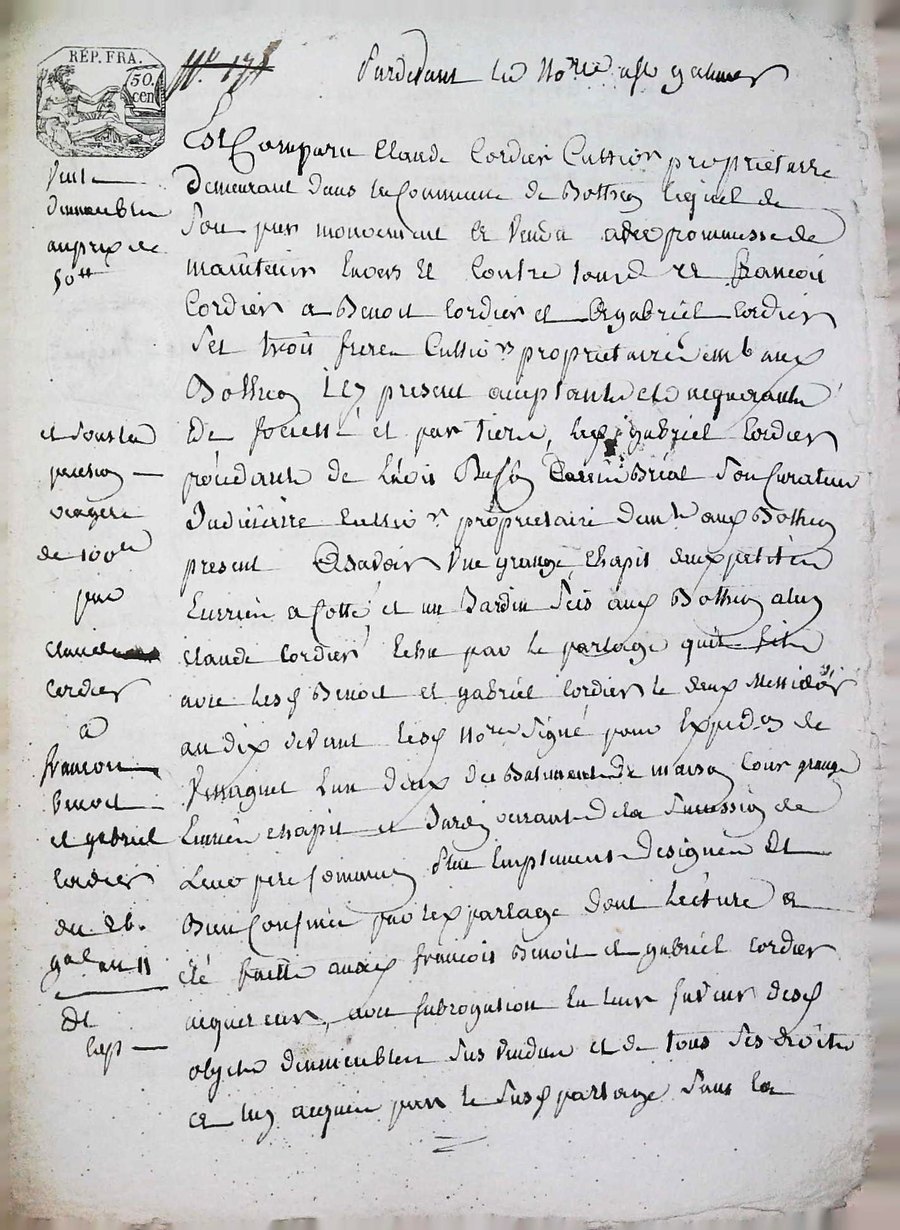 RÉP. FRA.
50
cen
N.º 175
Pardevant le No.re a St galmier
Est Comparu Claude Cordier Cultiv.r proprietaire
Demeurant dans la Commune de Botheon lequel de
Son pur mouvement a vendu avec promesse de
maintenir Envers Et Contre tous a francois
Cordier a Benoit Cordier et a gabriel Cordier
Ses trois freres Cultiv.rs proprietaires aux
Botheon Icy present acceptants et acquerants
De societté et par tiers, led gabriel Cordier
procedant de Son Curateur
Judiciaire Cultiv.r proprietaire dem.t aux Botheon
present Asavoir Vne grange, Chapit deux petites
Ecuries a Cotté et un Jardin Scis aux Botheon a luy
Claude Cordier Echu par le partage quil fit
avec lesd Benoit et gabriel Cordier le deux Messidor
an dix devant lesd No.re Signé pour Expedon de
Vinagnet lun deux des Batiments de maison Cour grange
Ecurie chapit et Jardin venant de la Succession de
Leur pere plus Emplement Designés Et
Bien Confinés par led partage dont Lecture a
été faitte auxd francois Benoit et gabriel Cordier
acquereurs, avec subrogation En leur faveur desd
objets dimmeubles sus vendus et de tous ses droits
a luy acquis par le Susd partage sous la
Vente
dimmeubles
au prix de
50tt
et sous la
pension
viagere
de 100tt
par
Claude
Cordier
a
francois
Benoit
et gabriel
Cordier
du 26.
g.al an 11